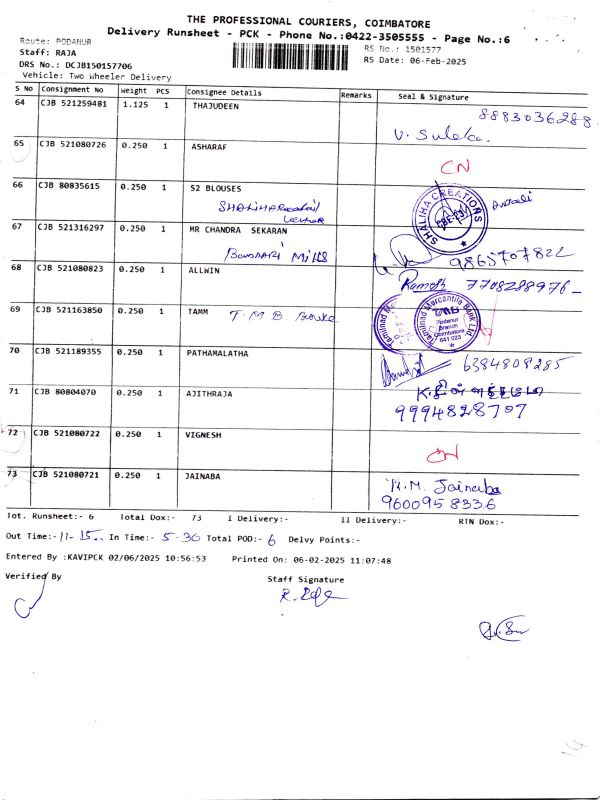 THE PROFESSIONAL COURIERS, COIMBATORE
Delivery Runsheet - PCK - Phone No.:0422-3505555 - Page No.:6
Route: PODANUR
RS No.: 1501577
Staff: RAJA
RS Date: 06-Feb-2025
DRS No.: DCJB150157706
Vehicle: Two Wheeler Delivery
S No Consignment No Weight PCS Consignee Details Remarks Seal & Signature
64 CJB 521259481 1.125 1 THAJUDEEN 8883036288
V. Suleka.
65 CJB 521080726 0.250 1 ASHARAF
CN
66 CJB 80835615 0.250 1 S2 BLOUSES
SHALIHA CREATIONS
CBE-23
67 CJB 521316297 0.250 1 MR CHANDRA SEKARAN
Mills 9865707822
68 CJB 521080823 0.250 1 ALLWIN Ramesh 7708288976
69 CJB 521163850 0.250 1 TAMM T.M.B
Tamilnad Mercantile Bank Ltd
TMB
Podanur
Branch
Coimbatore
641 023
70 CJB 521189355 0.250 1 PATHAMALATHA 6384808285
71 CJB 80804070 0.250 1 AJITHRAJA
9994828707
72 CJB 521080722 0.250 1 VIGNESH
CN
73 CJB 521080721 0.250 1 JAINABA K.M. Jainaba
9600958336
Tot. Runsheet:- 6 Total Dox:- 73 l Delivery:- ll Delivery:- RTN Dox:-
Out Time:- 11-15.. In Time:- 5-30 Total POD:- 6 Delvy Points:-
Entered By :KAVIPCK 02/06/2025 10:56:53 Printed On: 06-02-2025 11:07:48
Verified By Staff Signature
14